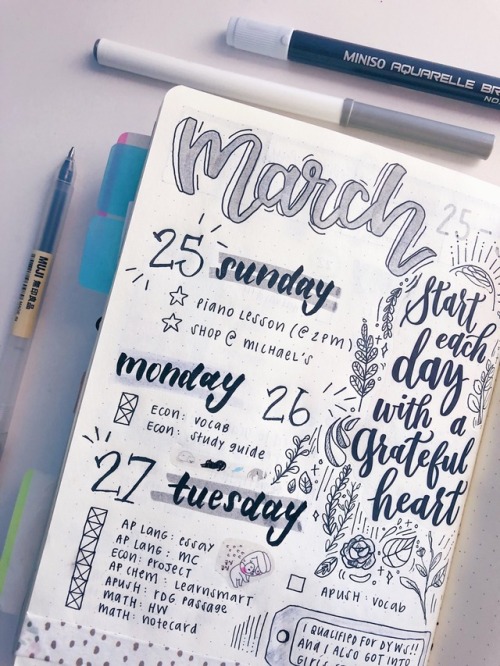 MINISO AQUARELLE BR
NO.
MUJ 無印良品
March
25-
25 sunday
PIANO LESSON (@ 2PM)
SHOP @ MICHAEL'S
monday 26
ECON: VOCAB
ECON: STUDY GUIDE
27 tuesday
AP LANG: ESSAY
AP LANG: MC
ECON: PROJECT
AP CHEM: LEARNSMART
APUSH: RDG PASSAGE
MATH: HW
MATH: NOTECARD
Start
each
day
with a
Grateful
heart
APUSH: VOCAB
I QUALIFIED FOR DYWS!!
AND I ALSO GOT INTO
GIRLS